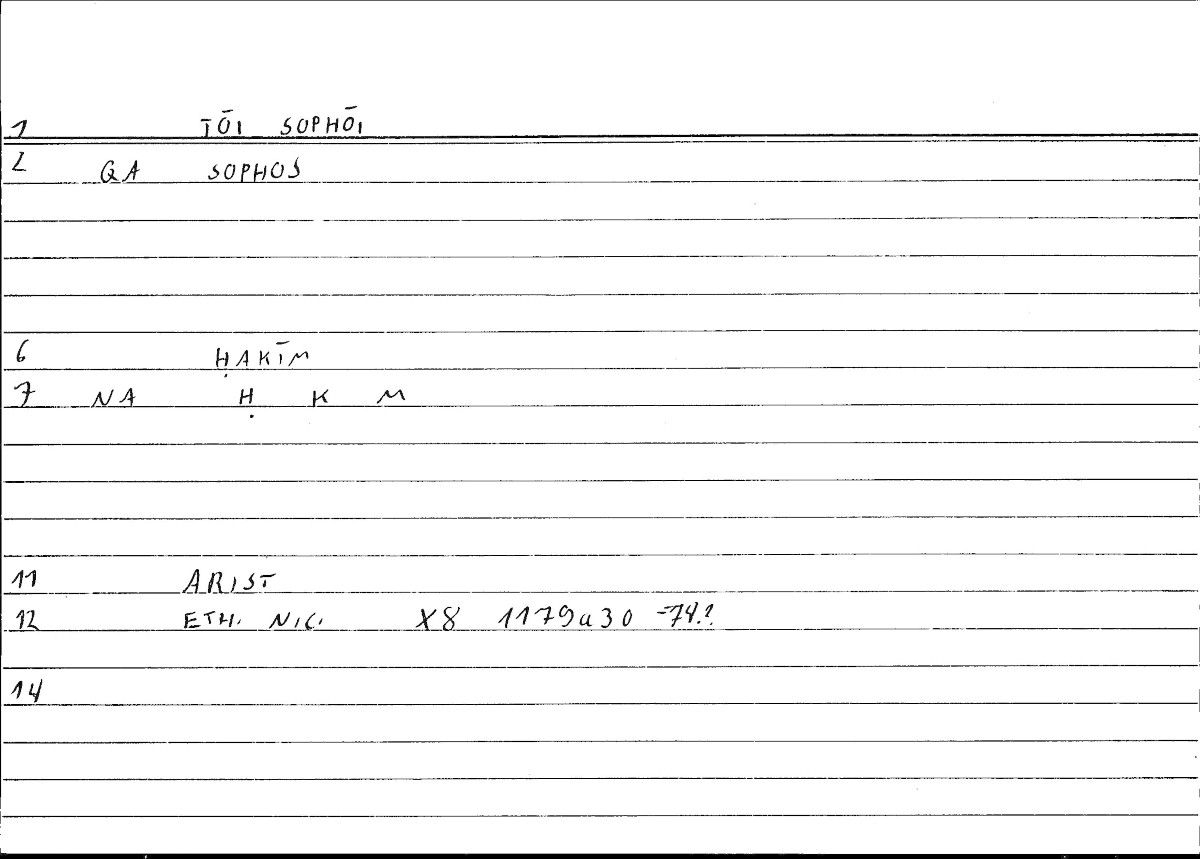 1 TŌI SOPHŌI
2 QA SOPHOS
6 ḤAKĪM
7 NA Ḥ K M
11 ARIST
12 ETH. NIC. X8 1179a30
14